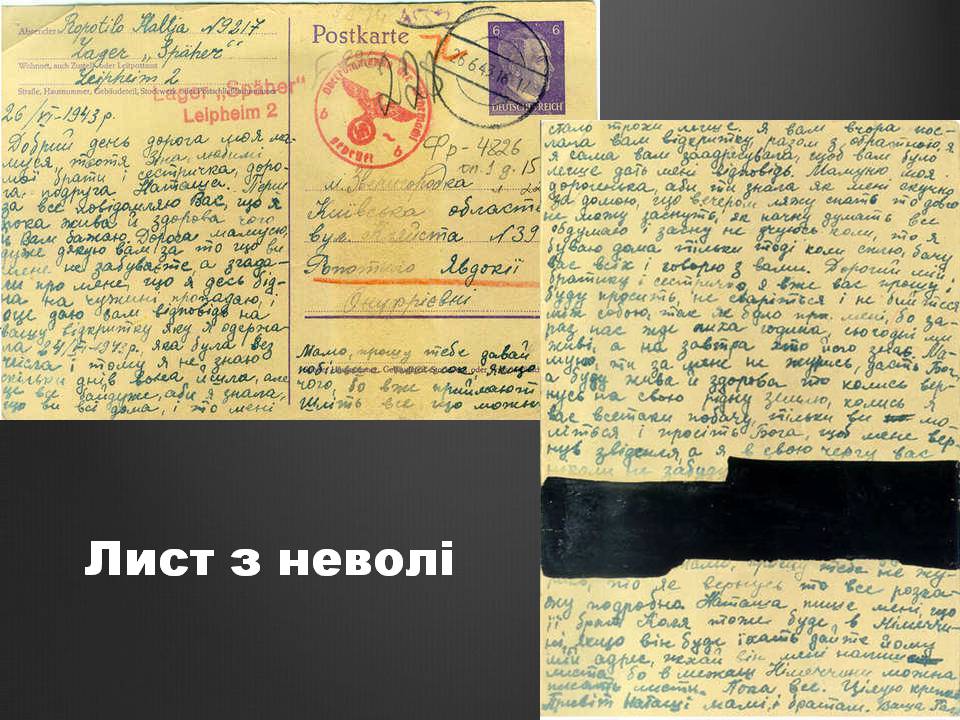 Absender: Ropotilo Hallja N9217
Lager „Späher“
Wohnort, auch Zustell- oder Leitpostamt
Leipheim 2
Straße, Hausnummer, Gebäudeteil, Stockwerk oder Postschließfachnummer
Lager „Späher“
Leipheim 2
Postkarte
228
26.6.43.16
6 6
DEUTSCHES REICH
geprüft
Фр - 4226
м. Звенигородка
Київська область
вул. N 39
Ропотило Явдокії
Онуфрієвни
26/VI-1943 р.
Добрий день дорога моя ма-
муся, тьотя Яна, любимі
мої брати і сестричка, доро-
га подруга Наташа. Перш
за все повідомляю Вас, що я
пока жива й здорова чого
й Вам бажаю. Дорога мамусю,
дуже дякую вам за то що ви
мене не забуваєте, а згада-
ли про мене, що я десь бід-
на на чужині пропадаю, і
оце даю вам відповідь на
вашу відкритку яку я одержа-
ла 24/VI-1943р., яка була без
числа і тому я не знаю
скільки днів вона йшла, але
це все байдуже, аби я знала,
що ви всі дома, і то мені
Мамо, прошу тебе давай
побільше посилок якщо
чого, бо вже приймають
Шліть все що можна
стало трохи легше. Я вам вчора пос-
лала вам відкритку разом з обратною, я
я сама вам заадрісувала, щоб вам було
легше дать мені відповідь. Мамуню моя
дорогенька, аби ти знала як мені скучно
за домою, що вечером ляжу спать то довго
не можу заснуть, як начну думать все
обдумаю і засну не дчуюсь коли, то я
буваю дома тільки тоді коли сплю, бачу
вас всіх і говорю з вами. Дорогий мій
братику і сестричко, я вже вас прошу і
буду просить, не сваріться і не бийтеся
між собою, так як було при мені, бо за-
раз нас жде лиха година, сьогодні ми
живі, а на завтра хто його знає. Ма-
муню, ти за мене не журись, дасть Бог,
а буду жива й здорова то колись вер-
нусь на свою рідну землю, колись я
вас всетаки побачу, тільки ви мо-
літься і просіть Бога, щоб мене вер-
нув звідсиля, а я в свою чергу вас
ніколи не забуду
Мамо, прошу тебе не жу-
рись, то як вернусь то все розка-
жу подробно. Наташа пише мені, що
її брат Коля тоже буде в Німеччи-
ні, якщо він буде їхать дайте йому
мій адрес, нехай він мені напише
листа бо в межах Німеччини можна
писать листи. Пока все. Цілую крепко
Привіт Наташі мамі і братам. Ваша Галя
Лист з неволі